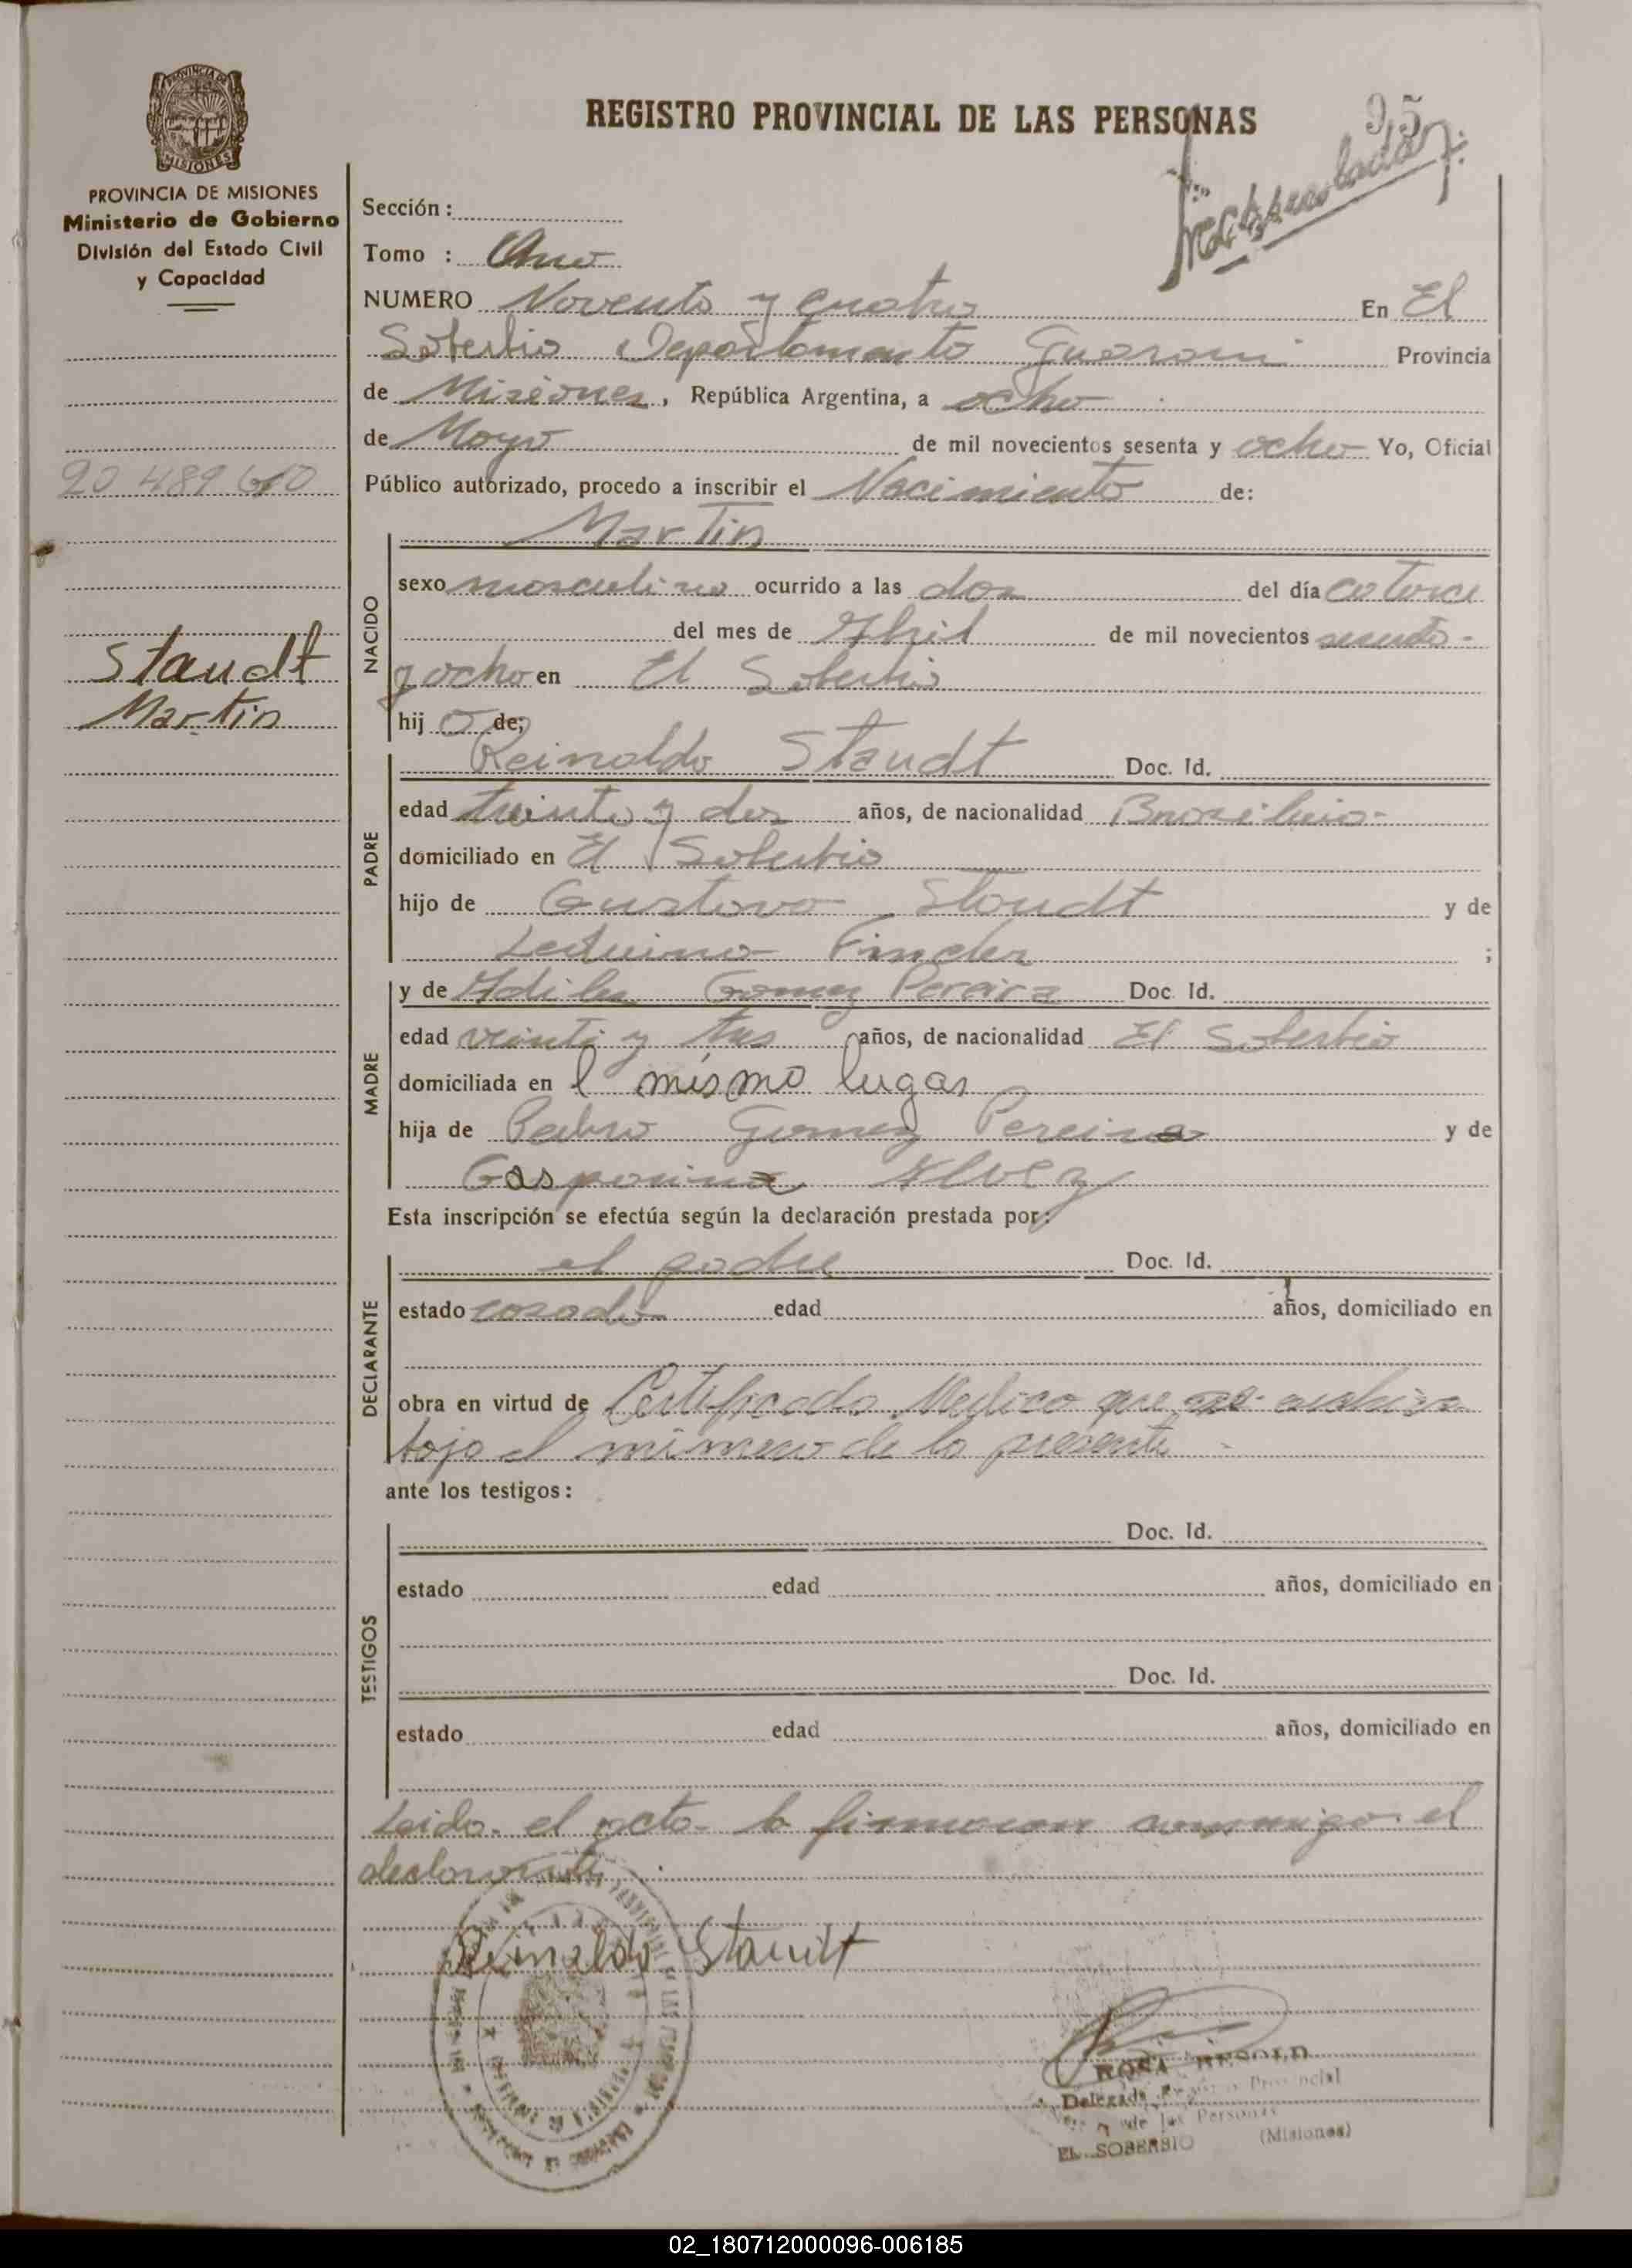 PROVINCIA DE
MISIONES
PROVINCIA DE MISIONES
Ministerio de Gobierno
División del Estado Civil
y Capacidad
20 489 610
Staudt
Martin
REGISTRO PROVINCIAL DE LAS PERSONAS
95
Sección:
Tomo : Uno
NUMERO Noventa y cuatro En El
Soberbio Departamento Guarani Provincia
de Misiones, República Argentina, a ocho
de Mayo de mil novecientos sesenta y ocho Yo, Oficial
Público autorizado, procedo a inscribir el Nacimiento de:
Martin
NACIDO
sexo masculino ocurrido a las dos del día catorce
del mes de Abril de mil novecientos sesenta-
y ocho en El Soberbio
hijo de;
Reinaldo Staudt Doc. Id.
PADRE
edad treinta y dos años, de nacionalidad Brasileña-
domiciliado en El Soberbio
hijo de Gustavo Staudt y de
Leduina Finder ;
y de Adiles Gomez Pereira Doc. Id.
MADRE
edad veinti y tres años, de nacionalidad El Soberbio
domiciliada en l mismo lugar
hija de Pedro Gomez Pereira y de
Gasparina Alvez
Esta inscripción se efectúa según la declaración prestada por:
el padre Doc. Id.
DECLARANTE
estado casado edad años, domiciliado en
obra en virtud de Certificado Medico que se archiva
bajo el número de la presente -
ante los testigos:
Doc. Id.
TESTIGOS
estado edad años, domiciliado en
Doc. Id.
estado edad años, domiciliado en
Leida el acta la firmaran conmigo el
declarante
Reinaldo Staudt
ROSA
Delegada Registro Provincial
de las Personas
EL SOBERBIO (Misiones)
02_180712000096-006185